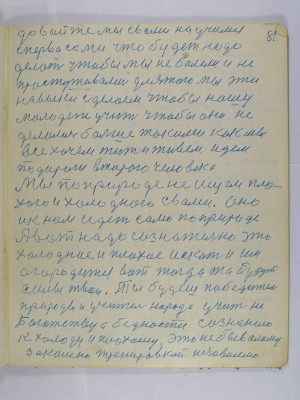 81
давайте мы с вами научимся
сперва сами что будет надо
делать чтобы мы не болели и не
простуживались для этого мы эти
навыки сделаем чтобы нашу
молодежь учить чтобы они не
делались больше такими как мы
Все хочем жить и живем идем
по дороги второго человека
Мы по природе не ищем пло-
хого и холодного с вами. Оно
к нам идет само по природе
А вот надо сознательно это
холодное и плохое искать и им
огородится вот тогда та будут
силы твои. Ты будеш победитель
природы и учитель народа учит не
богатству а бедности сознательно
к холоду и плохому, это небывалому
закалено тренировкой